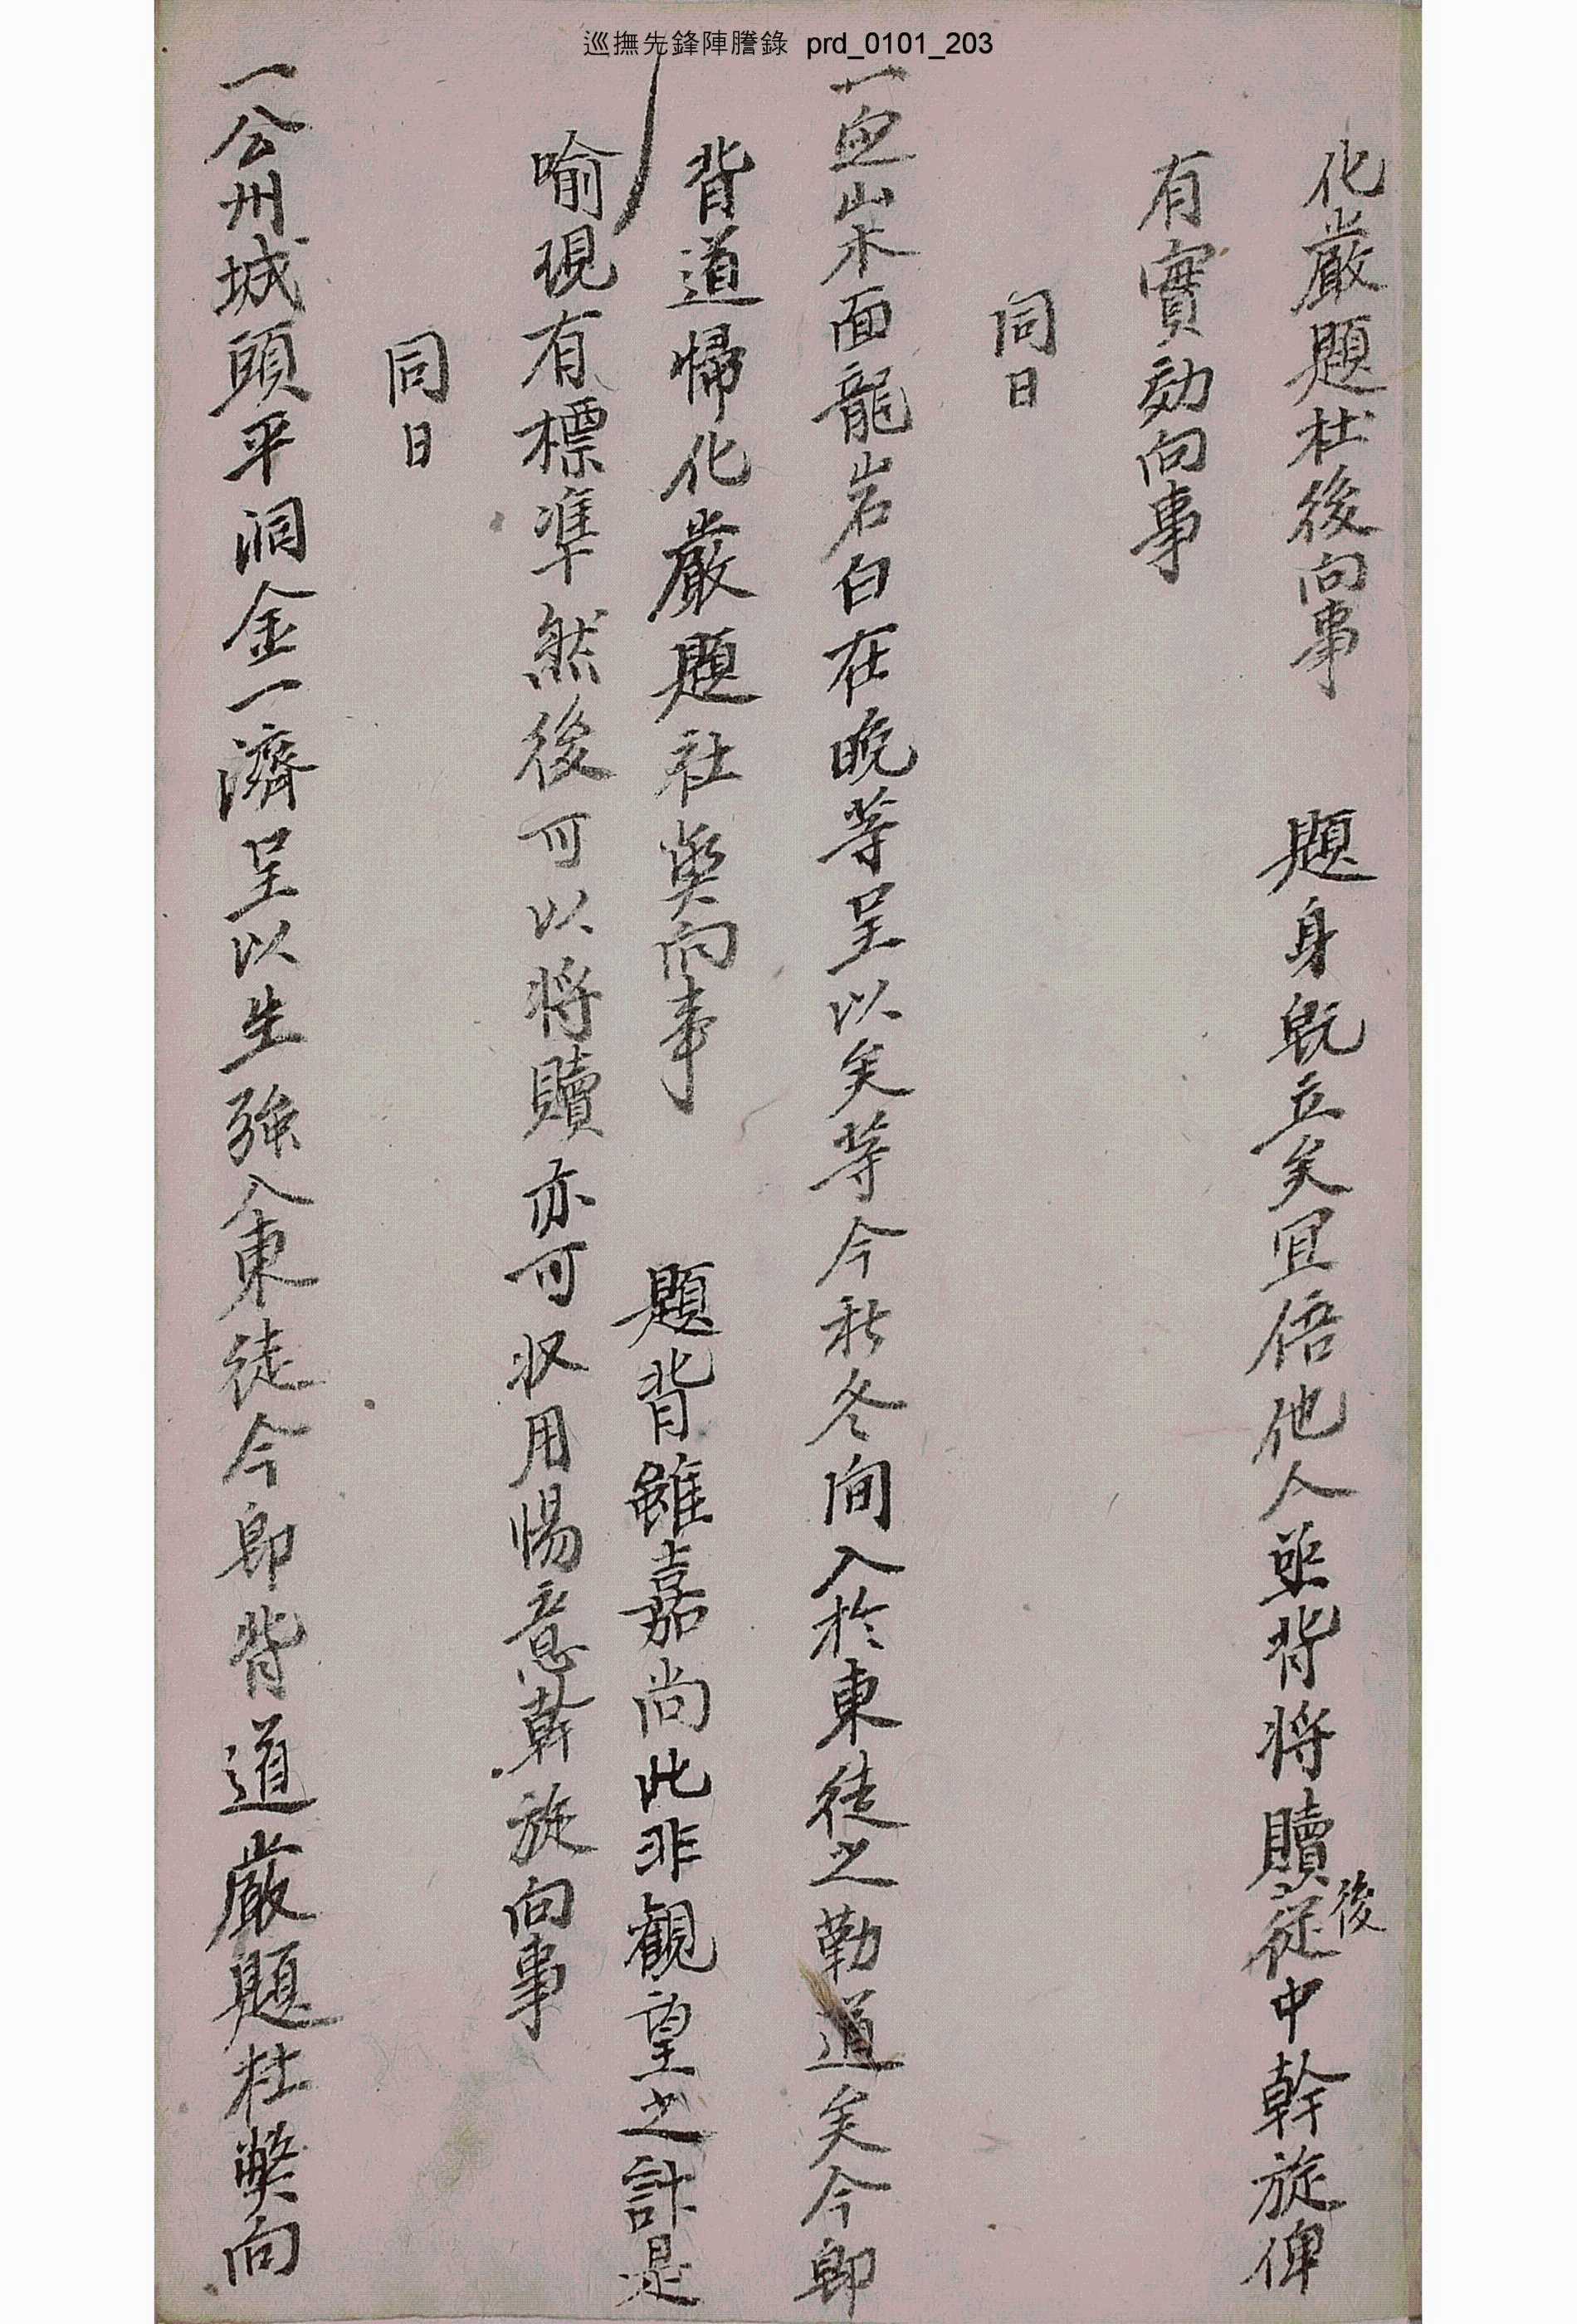 巡撫先鋒陣謄錄 prd_0101_203
化嚴題杜後向事 題身旣立矣宜倍他人亟背將贖後從中幹旋俾
有實効向事
同日
一 面龍岩白在晩等呈以矣等今秋冬間入於東徒之勒道矣今卽
背道歸化嚴題杜獘向事 題背雖嘉尙此非觀望之計是
喩現有標準然後可以將贖亦可收用惕意幹旋向事
同日
一公州城頭平洞金一濟呈以生強入東徒今卽背道嚴題杜獘向